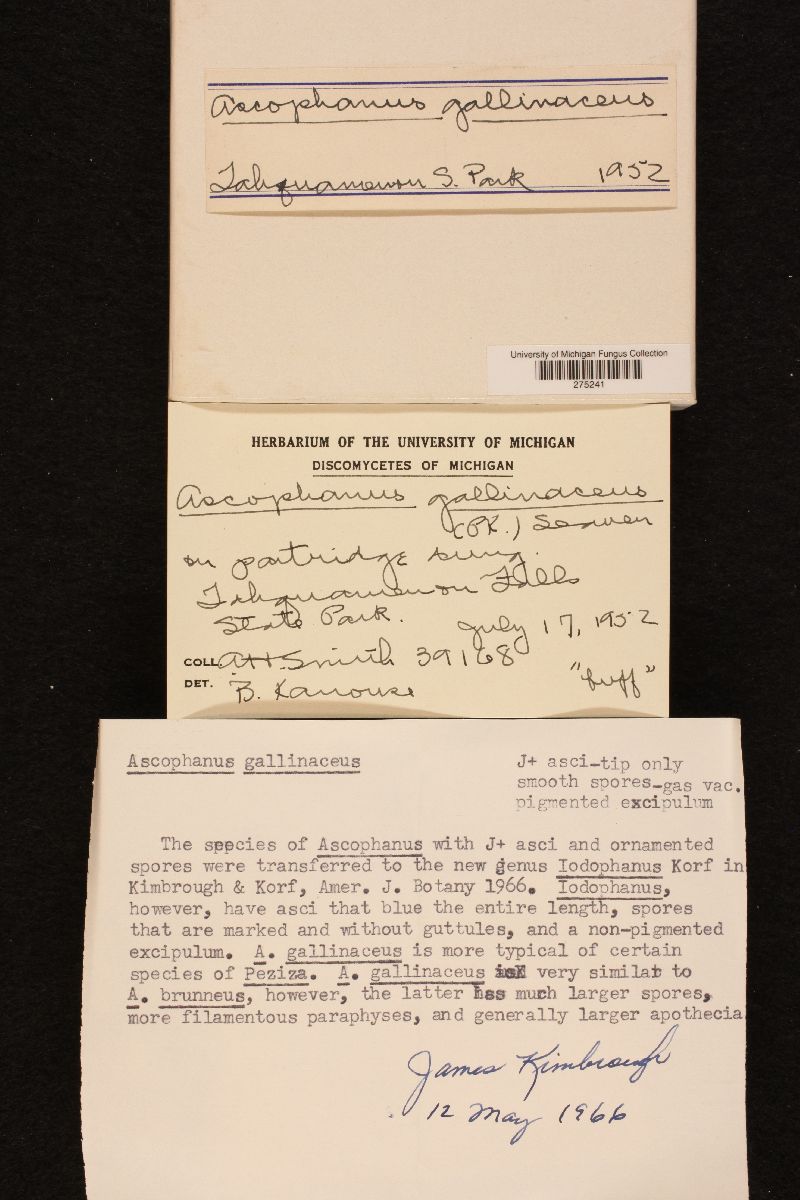 Ascophanus gallinaceus
Tahquamenon S. Park 1952
University of Michigan Fungus Collection
275241
HERBARIUM OF THE UNIVERSITY OF MICHIGAN
DISCOMYCETES OF MICHIGAN
Ascophanus gallinaceus
(PK.) Seaver
on partridge dung.
Tahquamenon Falls
State Park.
July 17, 1952
COLL. A.H. Smith 39168
DET. B. Kanouse "buff"
Ascophanus gallinaceus
J+ asci-tip only
smooth spores-gas vac.
pigmented excipulum
The species of Ascophanus with J+ asci and ornamented
spores were transferred to the new genus Iodophanus Korf in
Kimbrough & Korf, Amer. J. Botany 1966. Iodophanus,
however, have asci that blue the entire length, spores
that are marked and without guttules, and a non-pigmented
excipulum. A. gallinaceus is more typical of certain
species of Peziza. A. gallinaceus is very similar to
A. brunneus, however, the latter has much larger spores,
more filamentous paraphyses, and generally larger apothecia
James Kimbrough
12 May 1966